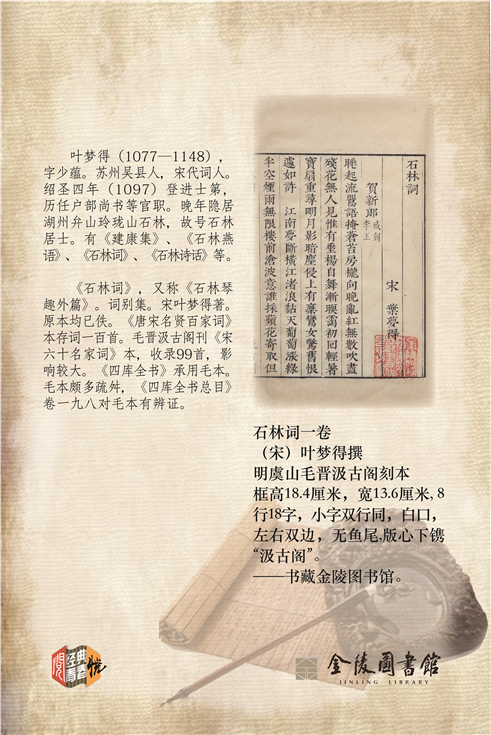 叶梦得（1077—1148），
字少蕴。苏州吴县人，宋代词人。
绍圣四年（1097）登进士第，
历任户部尚书等官职。晚年隐居
湖州弁山玲珑山石林，故号石林
居士。有《建康集》、《石林燕
语》、《石林词》、《石林诗话》等。
《石林词》，又称《石林琴
趣外篇》。词别集。宋叶梦得著。
原本均已佚。《唐宋名贤百家词》
本存词一百首。毛晋汲古阁刊《宋
六十名家词》本，收录99首，影
响较大。《四库全书》承用毛本。
毛本颇多疏舛，《四库全书总目》
卷一九八对毛本有辨证。
石林詞
宋 葉夢得
賀新郎
睡起流鶯語掩蒼苔房櫳向晚亂紅無數吹盡
殘花無人見惟有垂楊自舞漸暖靄初回輕暑
寶扇重尋明月影暗塵侵上有乘鸞女驚舊恨
遽如許 江南夢斷橫江渚浪黏天葡萄漲綠
半空煙雨無限樓前滄波意誰採蘋花寄取但
石林词一卷
（宋）叶梦得撰
明虞山毛晋汲古阁刻本
框高18.4厘米，宽13.6厘米, 8
行18字，小字双行同，白口，
左右双边，无鱼尾,版心下镌
“汲古阁”。
——书藏金陵图书馆。
金陵圖書館
JINLING LIBRARY